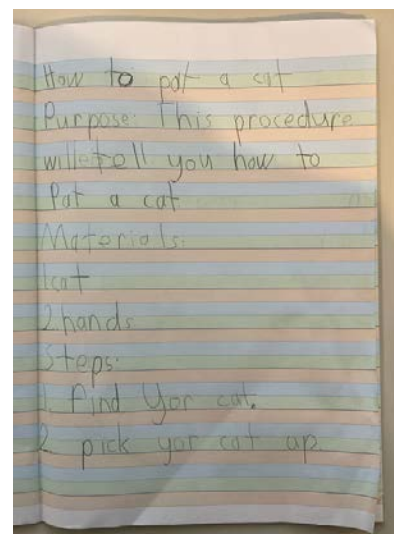 How to pat a cat
Purpose: This procedure
will tell you how to
Pat a cat
Materials:
1cat
2 hands
Steps:
1. Find Yor cat.
2 pick yor cat up.